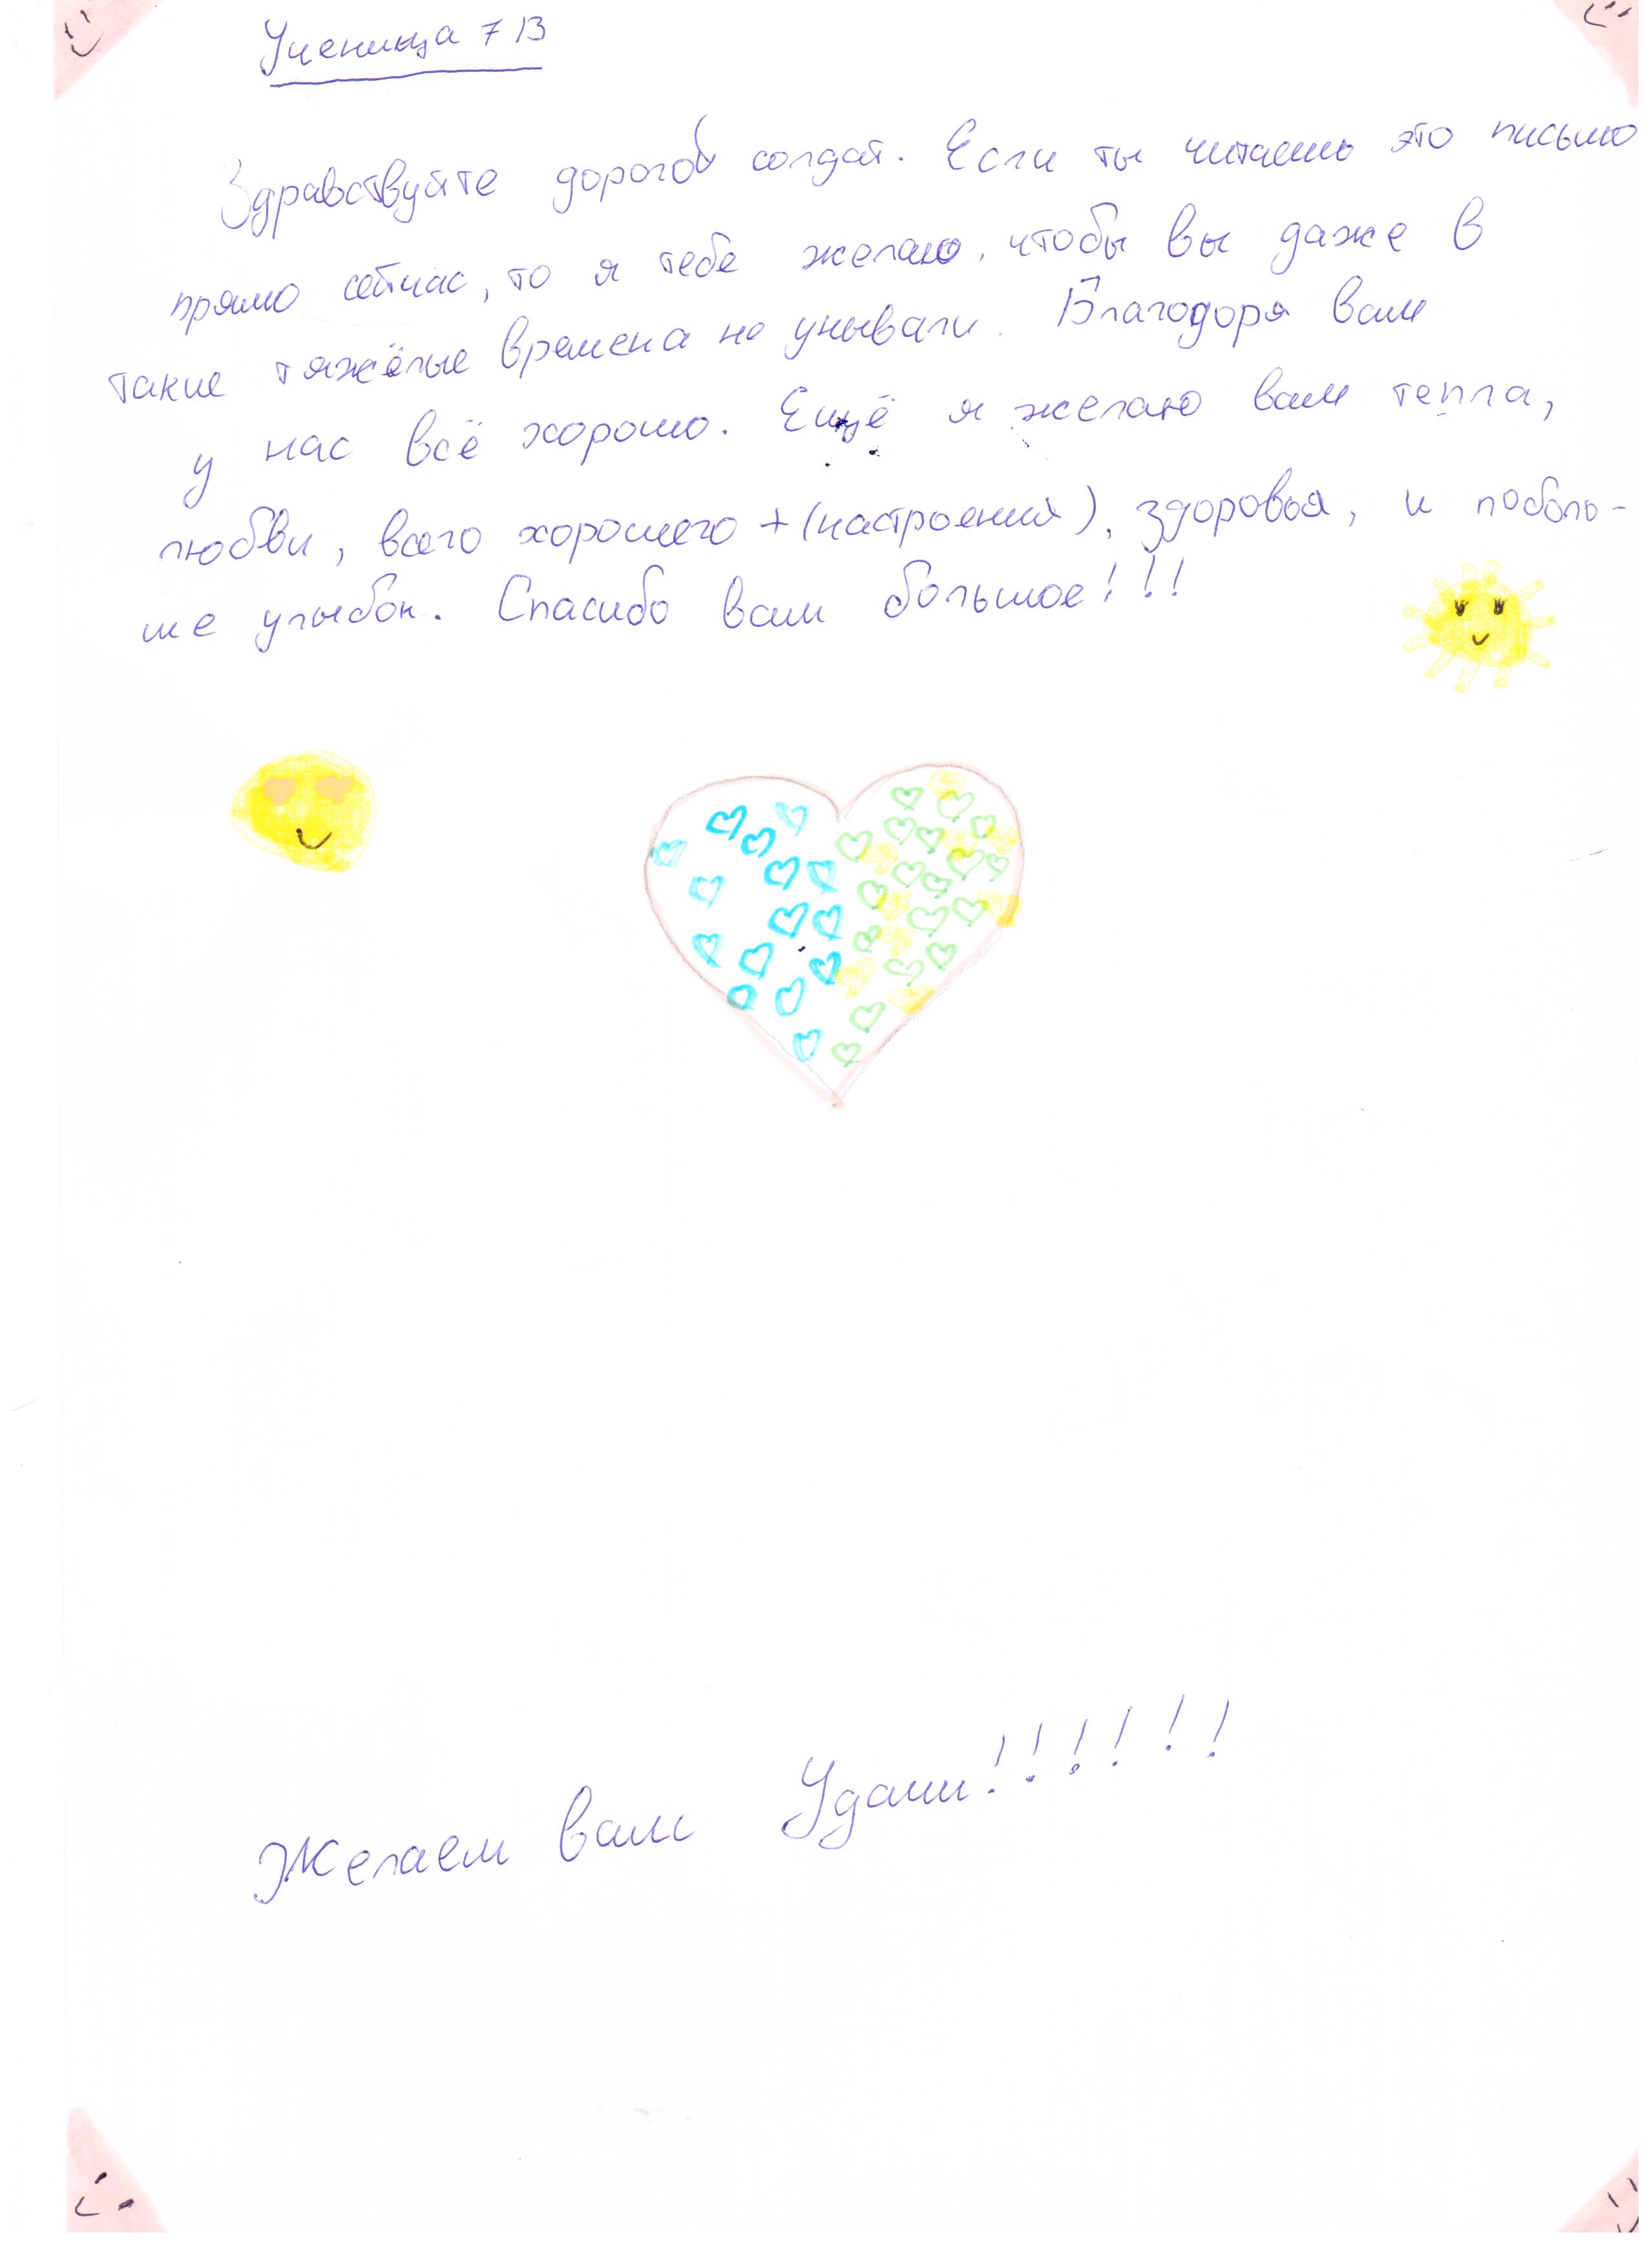 Ученица 7 В
Здравствуйте дорогой солдат. Если ты читаешь это письмо
прямо сейчас, то я тебе желаю, чтобы вы даже в
такие тяжёлые времена не унывали. Благодоря вам
у нас всё хорошо. Ещё я желаю вам тепла,
любви, всего хорошего + (настроения), здоровья, и поболь-
ше улыбок. Спасибо вам большое!!!
Желаем вам Удачи!!!!!!